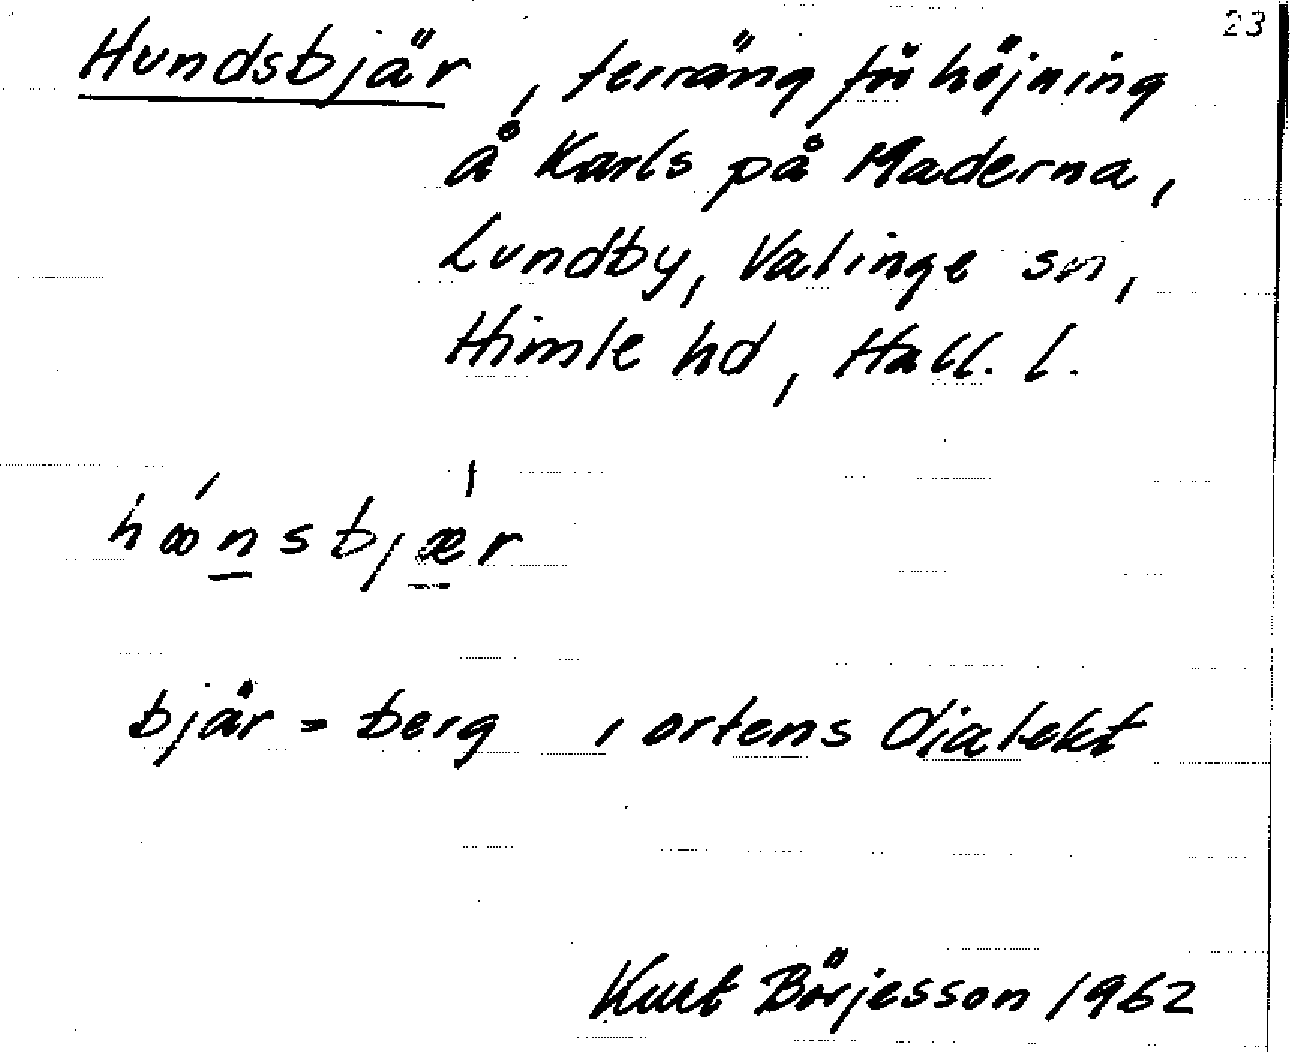 23
Hundsbjär, terrängförhöjning
å Karls på Maderna,
Lundby, Valinge sn,
Himle hd, Hall. l.
bjär = berg i ortens dialekt
Kurt Börjesson 1962